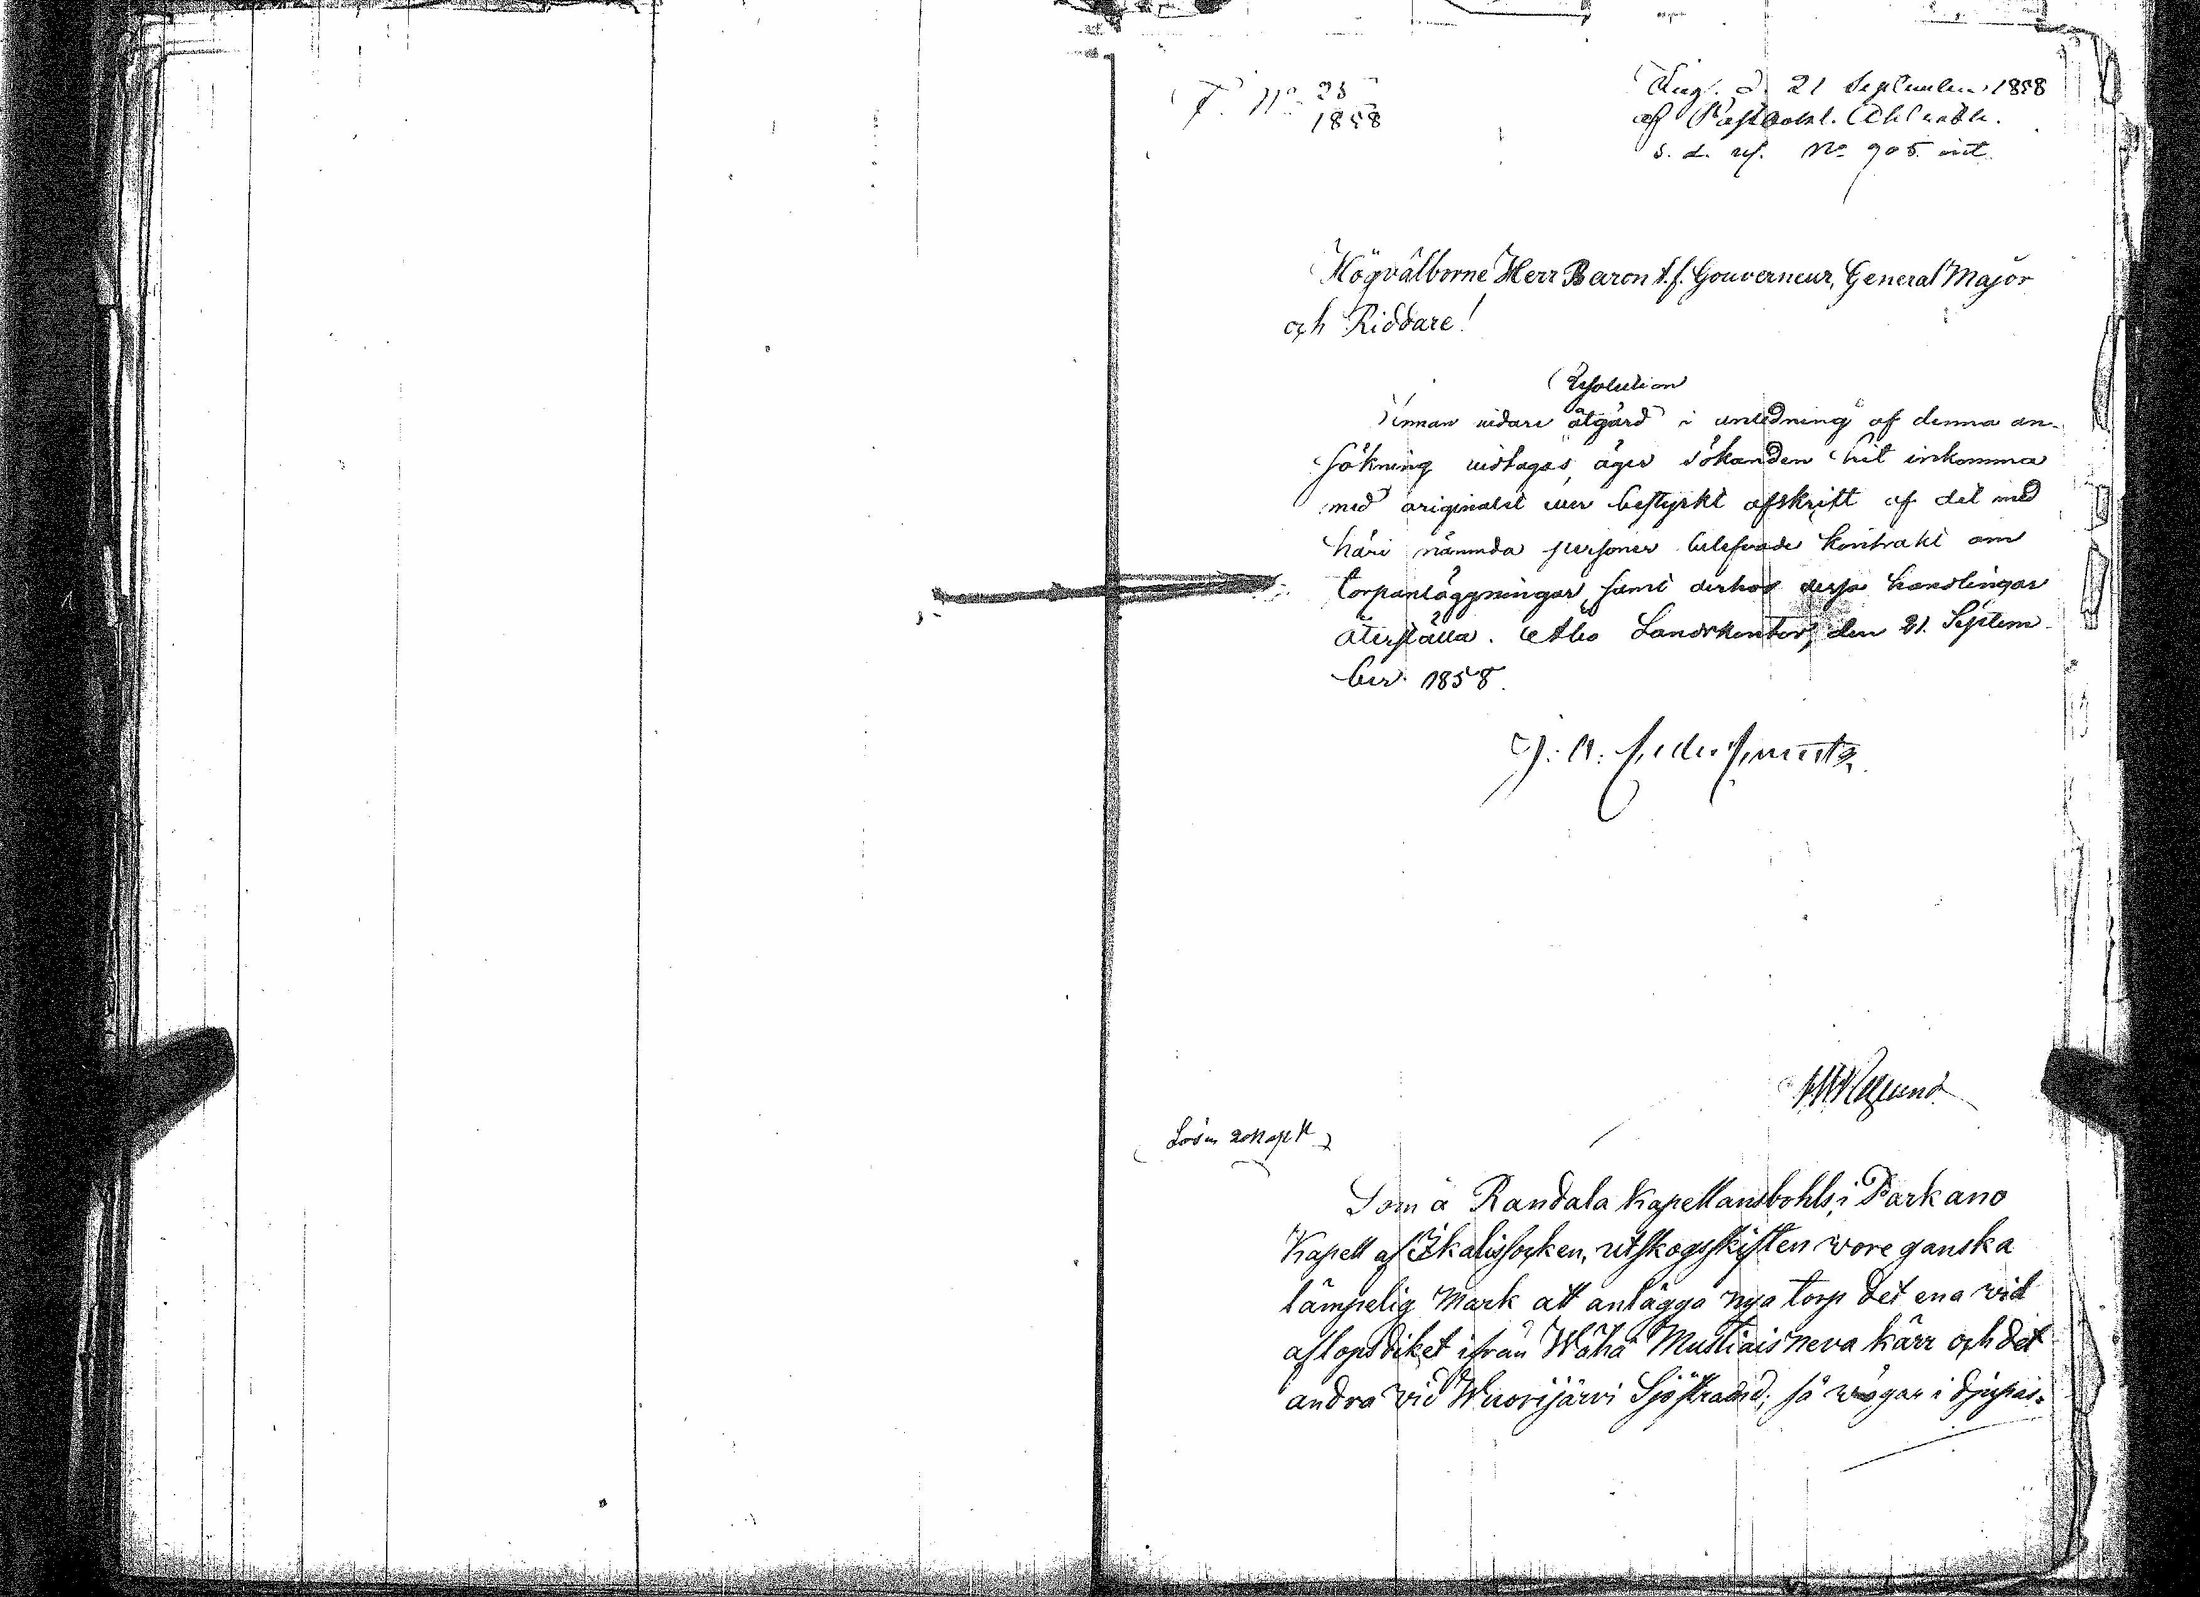 T. No 25
1858
Ing. d. 21 September 1858
af
s. d. ref. No 905 int.
Högvälborne Herr Baron t.f. Gouverneur, General Major
och Riddare!
Resolution
Innan vidare åtgärd i anledning af denna an-
sökning vidtages, äger sökanden hit inkomma
med originalet eller bestyrkt afskrift af det med
häri nämnda personer belefvade kontrakt om
torpanläggningar, samt derhos dessa handlingar
återställa. Åbo Landskontor, den 21. Septem-
ber 1858.
Lösen 20 kop. Sr
Som å Randala Kapellansbohls, i Parkano
Kapell af Ikalis socken, utskogsskiften wore ganska
lämpelig mark att anlägga nya torp det ena vid
aflopsdiket ifrån Wähä Mustiaisneva kärr och det
andra vid Wuorijärvi Sjöstrand; så wågar i djupas-